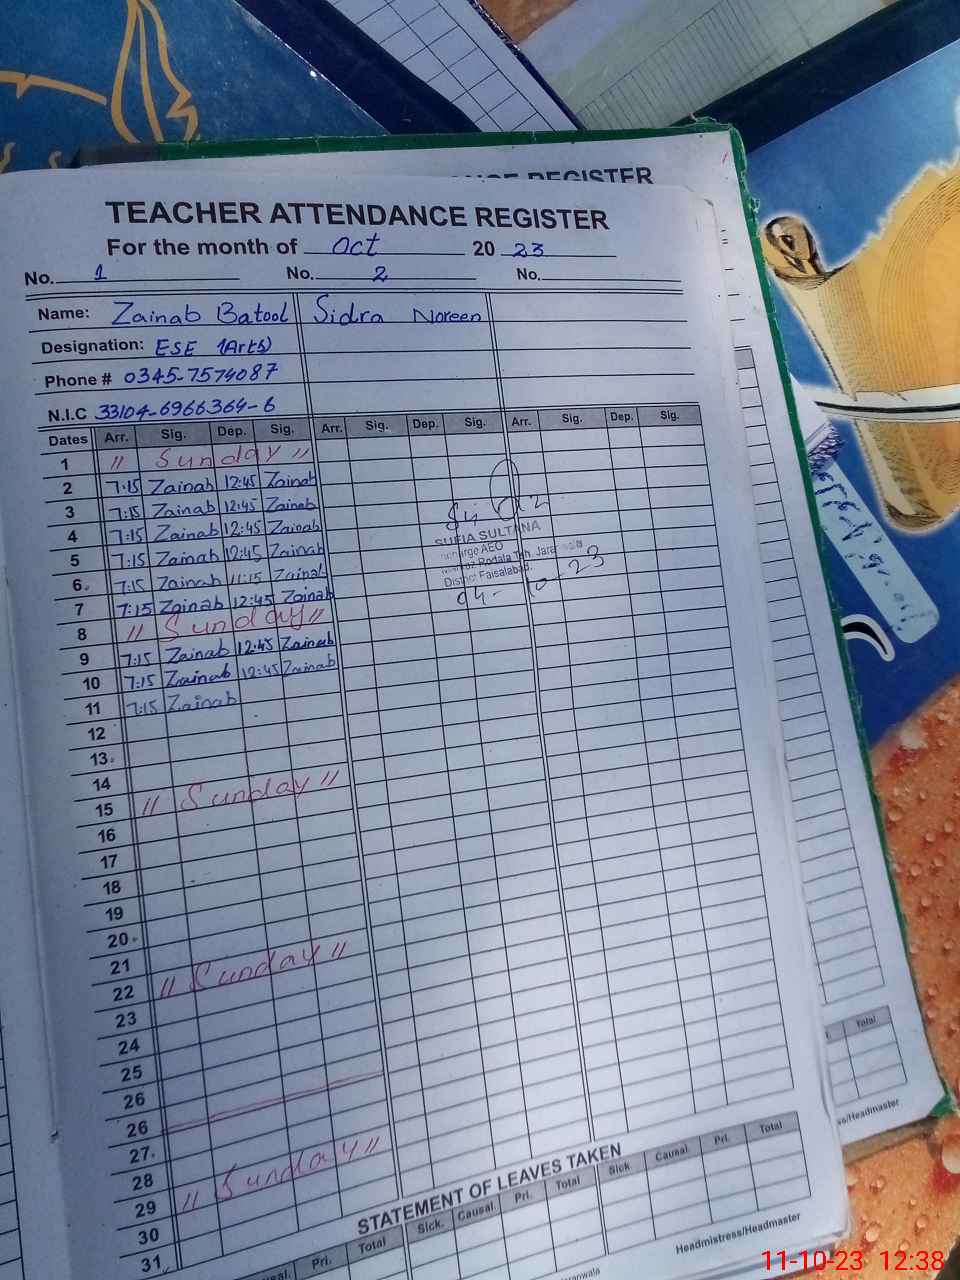 REGISTER
TEACHER ATTENDANCE REGISTER
For the month of Oct 2023
No. 1 No. 2 No.
Name: Zainab Batool Sidra Noreen
Designation: ESE (Arts)
Phone # 0345-7574087
N.I.C 33104-6966364-6
Dates Arr. Sig. Dep. Sig. Arr. Sig. Dep. Sig. Arr. Sig. Dep. Sig.
1 " Sunday "
2 7:15 Zainab 12:45 Zainab
3 7:15 Zainab 12:45 Zainab
4 7:15 Zainab 12:45 Zainab
5 7:15 Zainab 12:45 Zainab
6 7:15 Zainab 11:15 Zainab
7 7:15 Zainab 12:45 Zainab
8 " Sunday "
9 7:15 Zainab 12:45 Zainab
10 7:15 Zainab 12:45 Zainab
11 7:15 Zainab
SUFIA SULTANA
AEO
Rodala Teh.
District Faisalabad.
04-10-23
12
13
14
15 " Sunday "
16
17
18
19
20
21
22 " Sunday "
23
24
25
26
26
27
28
29 " Sunday "
30
31
STATEMENT OF LEAVES TAKEN
Pri. Total Sick. Causal. Pri. Total Sick Causal Pri. Total
Headmistress/Headmaster
Total
/Headmaster
11-10-23 12:38